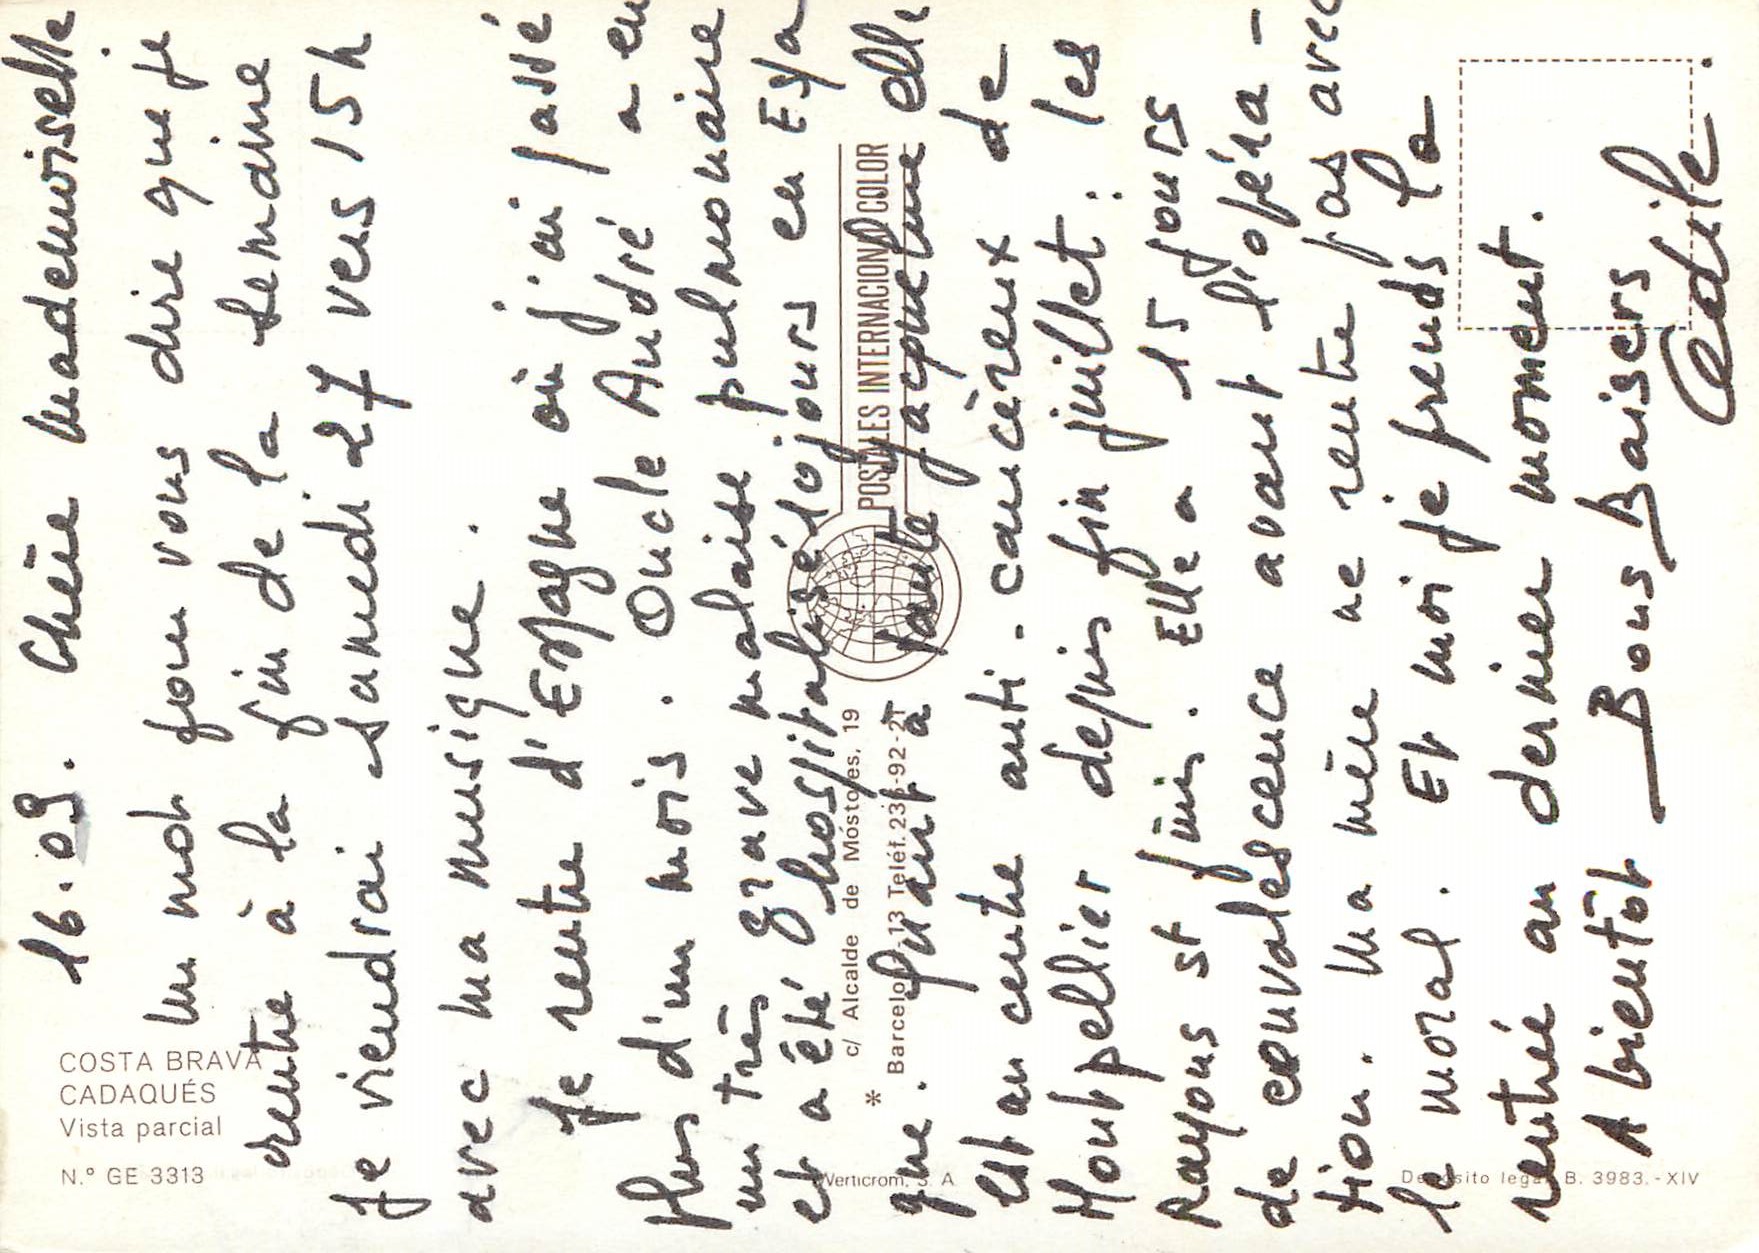 16.09. Chère Mademoiselle
Un mot pour vous dire que je
rentre à la fin de la semaine
Je viendrai samedi 27 vers 15h
avec ma musique.
Je rentre d'Espagne où j'ai passé
plus d'un mois. Oncle André a eu
un très grave malaise pulmonaire
et a été hospitalisé 10 jours en Espa
gne. Quant à tante Jacqueline elle
est au centre anti-cancéreux de
Montpellier depuis fin juillet: les
Rayons st finis. Elle a 15 jours
de convalescence avant l'opéra-
tion. Ma mère ne rentre pas avec
le moral. Et moi je prends la
rentrée au dernier moment.
A bientôt Bons Baisers
Cécile.
COSTA BRAVA
CADAQUÉS
Vista parcial
N.° GE 3313
POSTALES INTERNACIONAL COLOR
c/ Alcalde de Móstoles, 19
* Barcelona-13 Teléf. 236-92-21
Verticrom, S. A
Depósito legal B. 3983.-XIV